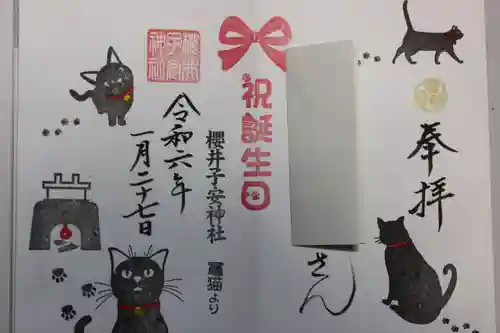 奉拝
さん
祝誕生日
櫻井子安神社 冨猫より
令和六年
一月二十七日
櫻井子安神社